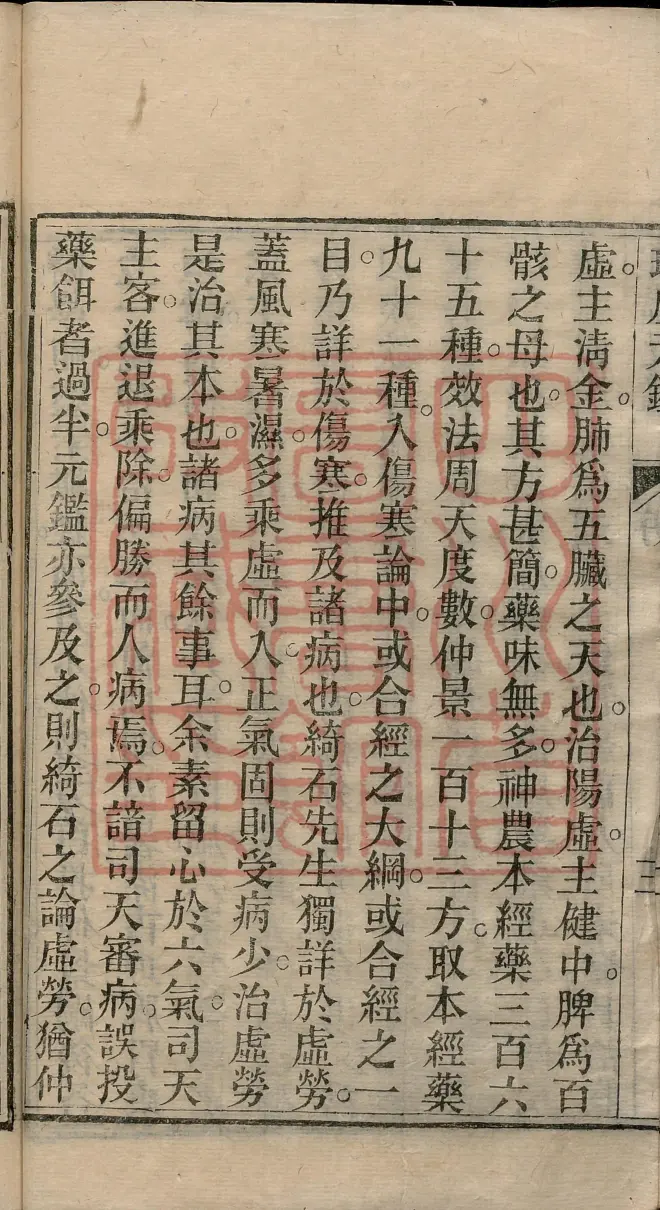 虛主清金肺爲五臟之天也治陽虛主健中脾爲百
骸之母也其方甚簡藥味無多神農本經藥三百六
十五種效法周天度數仲景一百十三方取本經藥
九十一種入傷寒論中或合經之大綱或合經之一
目乃詳於傷寒推及諸病也綺石先生獨詳於虛勞
蓋風寒暑濕多乘虛而入正氣固則受病少治虛勞
是治其本也諸病其餘事耳余素留心於六氣司天
主客進退乘除偏勝而人病焉不諳司天審病誤投
藥餌者過半元鑑亦參及之則綺石之論虛勞猶仲